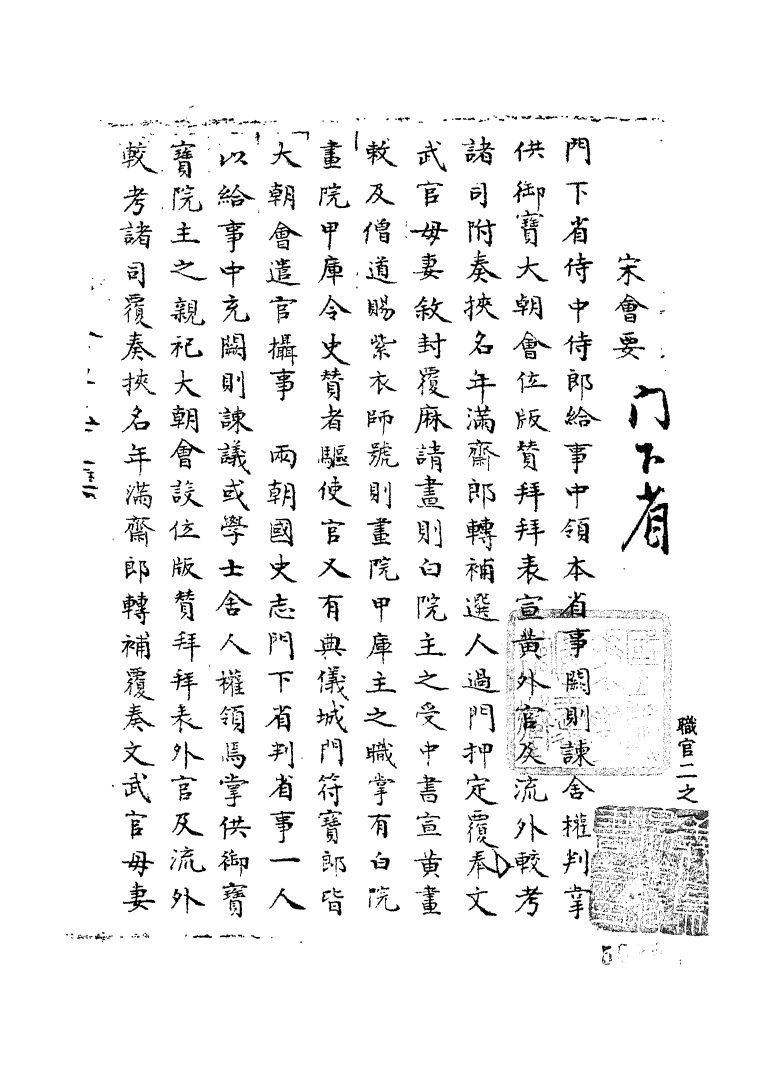 宋會要
門下省
門下省侍中侍郎給事中領本省事闕則諫舍權判掌
供御寶大朝會位版贊拜拜表宣黃外官及流外較考
諸司附奏挾名年滿齋郎轉補選人過門押定覆奏文
武官母妻敘封覆麻請畫則白院主之受中書宣黃畫
敕及僧道賜紫衣師號則畫院甲庫主之職掌有白院
畫院甲庫令史贊者驅使官又有典儀城門符寶郎皆
大朝會遣官攝事　兩朝國史志門下省判省事一人
以給事中充闕則諫議或學士舍人權領焉掌供御寶
寶院主之親祀大朝會設位版贊拜拜表外官及流外
較考諸司覆奏挾名年滿齋郎轉補覆奏文武官母妻
職官二之